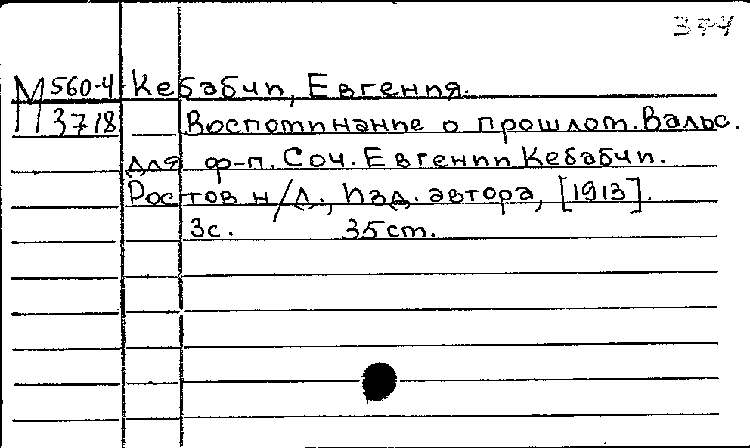 374
М 560-4 Кебабчи, Евгения.
3718 Воспоминание о прошлом. Вальс.
для ф-п. Соч. Евгении Кебабчи.
Ростов н/Д., Изд. автора, [1913].
3с. 35cm.